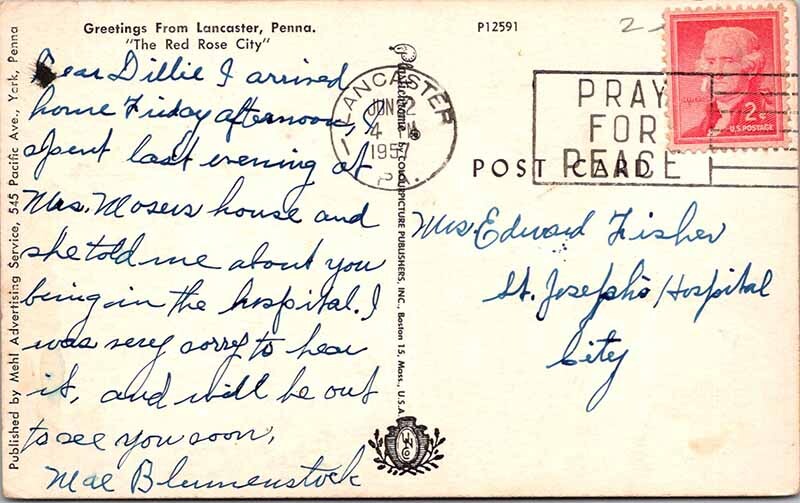 Greetings From Lancaster, Penna.
"The Red Rose City"
P12591
Dear Dillie I arrived
home Friday afternoon, &
spent last evening at
Mrs. Mosers house and
she told me about you
being in the hospital. I
was very sorry to hear
it, and will be out
to see you soon,
Mae Blumenstock
Published by Mehl Advertising Service, 545 Pacific Ave., York, Penna
Plastichrome by COLOURPICTURE PUBLISHERS, INC., Boston 15, Mass., U.S.A.
LANCASTER
JUN 2
4
1957
PA.
PRAY
FOR
PEACE
2¢
U.S. POSTAGE
POST CARD
Mrs. Edward Fisher
St. Joseph's Hospital
City